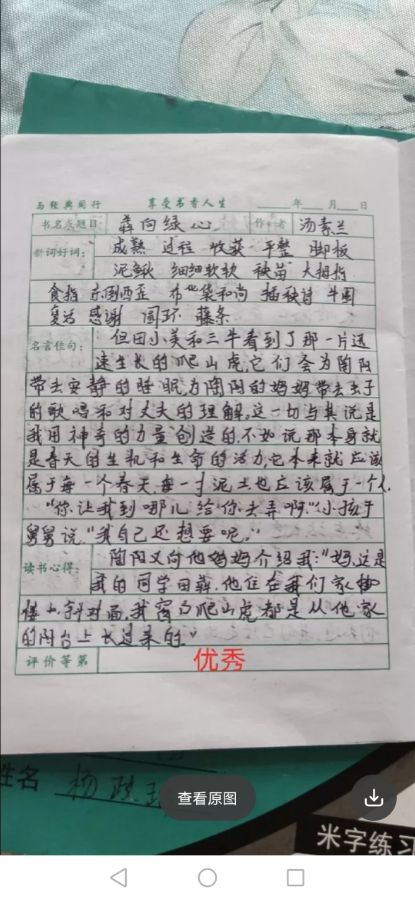 与经典同行 享受书香人生 年 月 日
书名及题目 犇向绿心 作者 汤素兰
新词好词： 成熟 过程 收获 平整 脚板
泥鳅 细细软软 秧苗 大拇指
食指 东倒西歪 布袋和尚 插秧诗 牛圈
感谢 圆环 藤条
名言佳句： 但田小芙和三牛看到了那一片迅
速生长的爬山虎，它们会为陶阳
带去安静的睡眠，为陶阳的妈妈带去虫子
的歌唱和对丈夫的理解，这一切与其说是
我用神奇的力量创造的，不如说那本身就
是春天的生机和生命的活力，它本来就应该
属于每一个春天，每一寸泥土也应该属于一个人
“你让我到哪儿给你去弄啊”小孩子
舅舅说“我自己还想要呢，”
读书心得： 陶阳又向他妈妈介绍我：“妈，这是
我的同学田犇，他住在我们家
楼上，斜对面，我窗口爬山虎都是从他家
的阳台上长过来的”
评价等第 优秀
姓名 杨
查看原图
米字练习